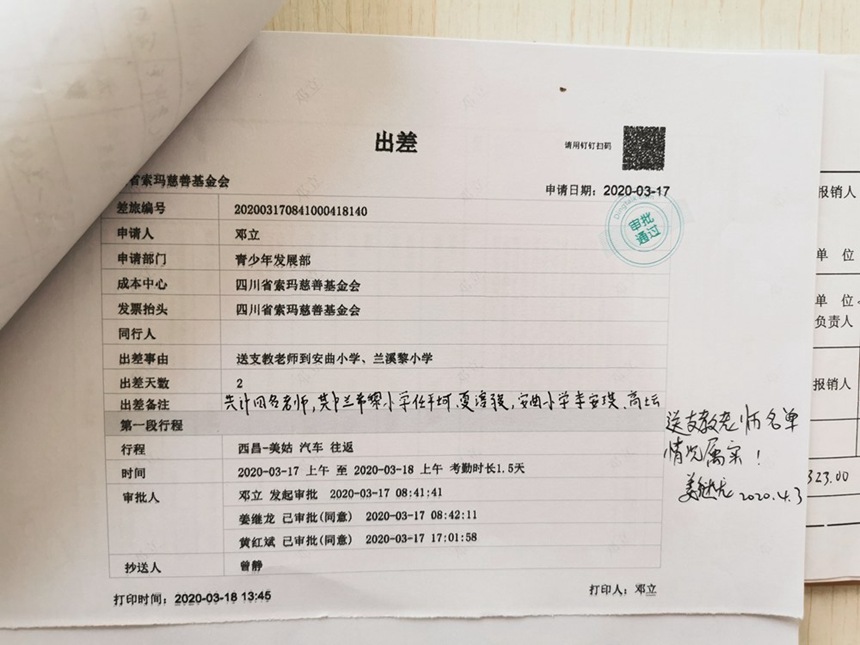 出差
请用钉钉扫码
省索玛慈善基金会
申请日期：2020-03-17
审批
通过
差旅编号 202003170841000418140
申请人 邓立
申请部门 青少年发展部
成本中心 四川省索玛慈善基金会
发票抬头 四川省索玛慈善基金会
同行人
出差事由 送支教老师到安曲小学、兰溪黎小学
出差天数 2
出差备注 共计四名老师，其中兰希黎小学任于坷、夏浮强，安曲小学李安琪、高土云
第一段行程
行程 西昌-美姑 汽车 往返
时间 2020-03-17 上午 至 2020-03-18 上午 考勤时长1.5天
审批人 邓立 发起审批 2020-03-17 08:41:41
姜继龙 已审批(同意) 2020-03-17 08:42:11
黄红斌 已审批(同意) 2020-03-17 17:01:58
抄送人 曾静
打印时间：2020-03-18 13:45
打印人：邓立
送支教老师名单
情况属实！
姜继龙 2020.4.3
报销人
单 位
单 位
负责人
报销人
323.00